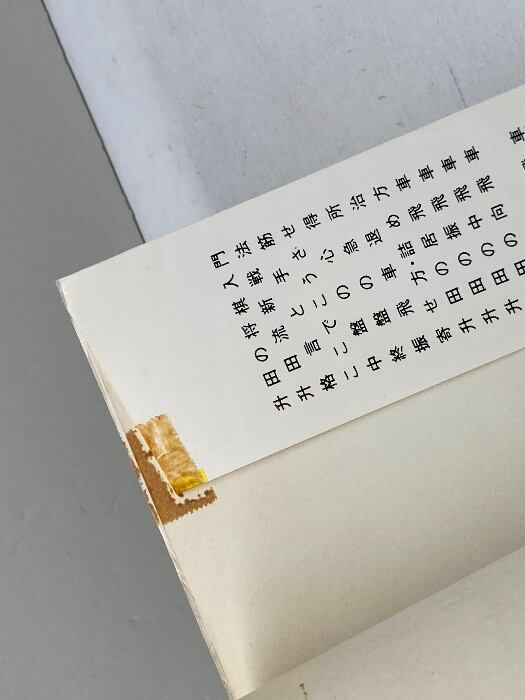 升田の将棋入門
升田流新戦法
格言と手筋
ここでこうさせ
中盤の心得
終盤の急所
振飛車退治
寄せ方・詰め方
升田の居飛車
升田の振飛車
升田の中飛車
田の向飛車
車